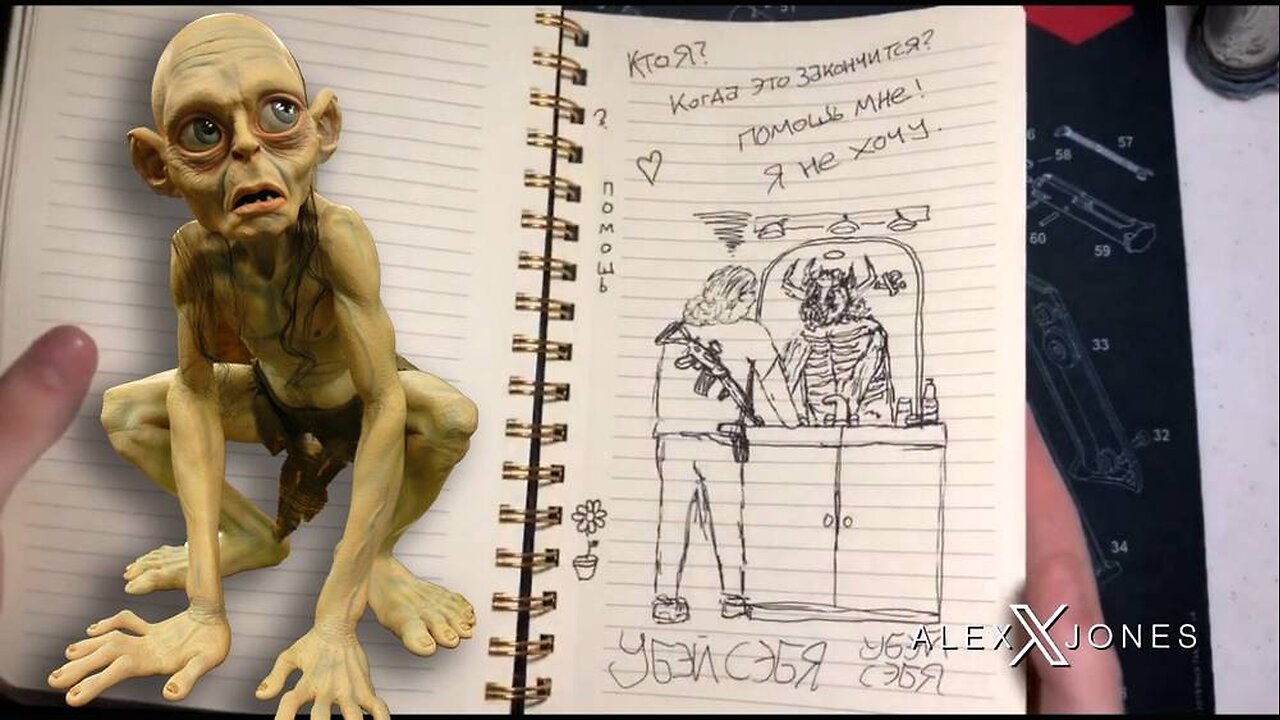 Кто я?
Когда это закончится?
?
помошь мне!
я не хочу.
помошь
57
58
60
59
33
32
34
УБЭЙ СЭБЯ
УБЭЙ
СЭБЯ
ALEX X JONES